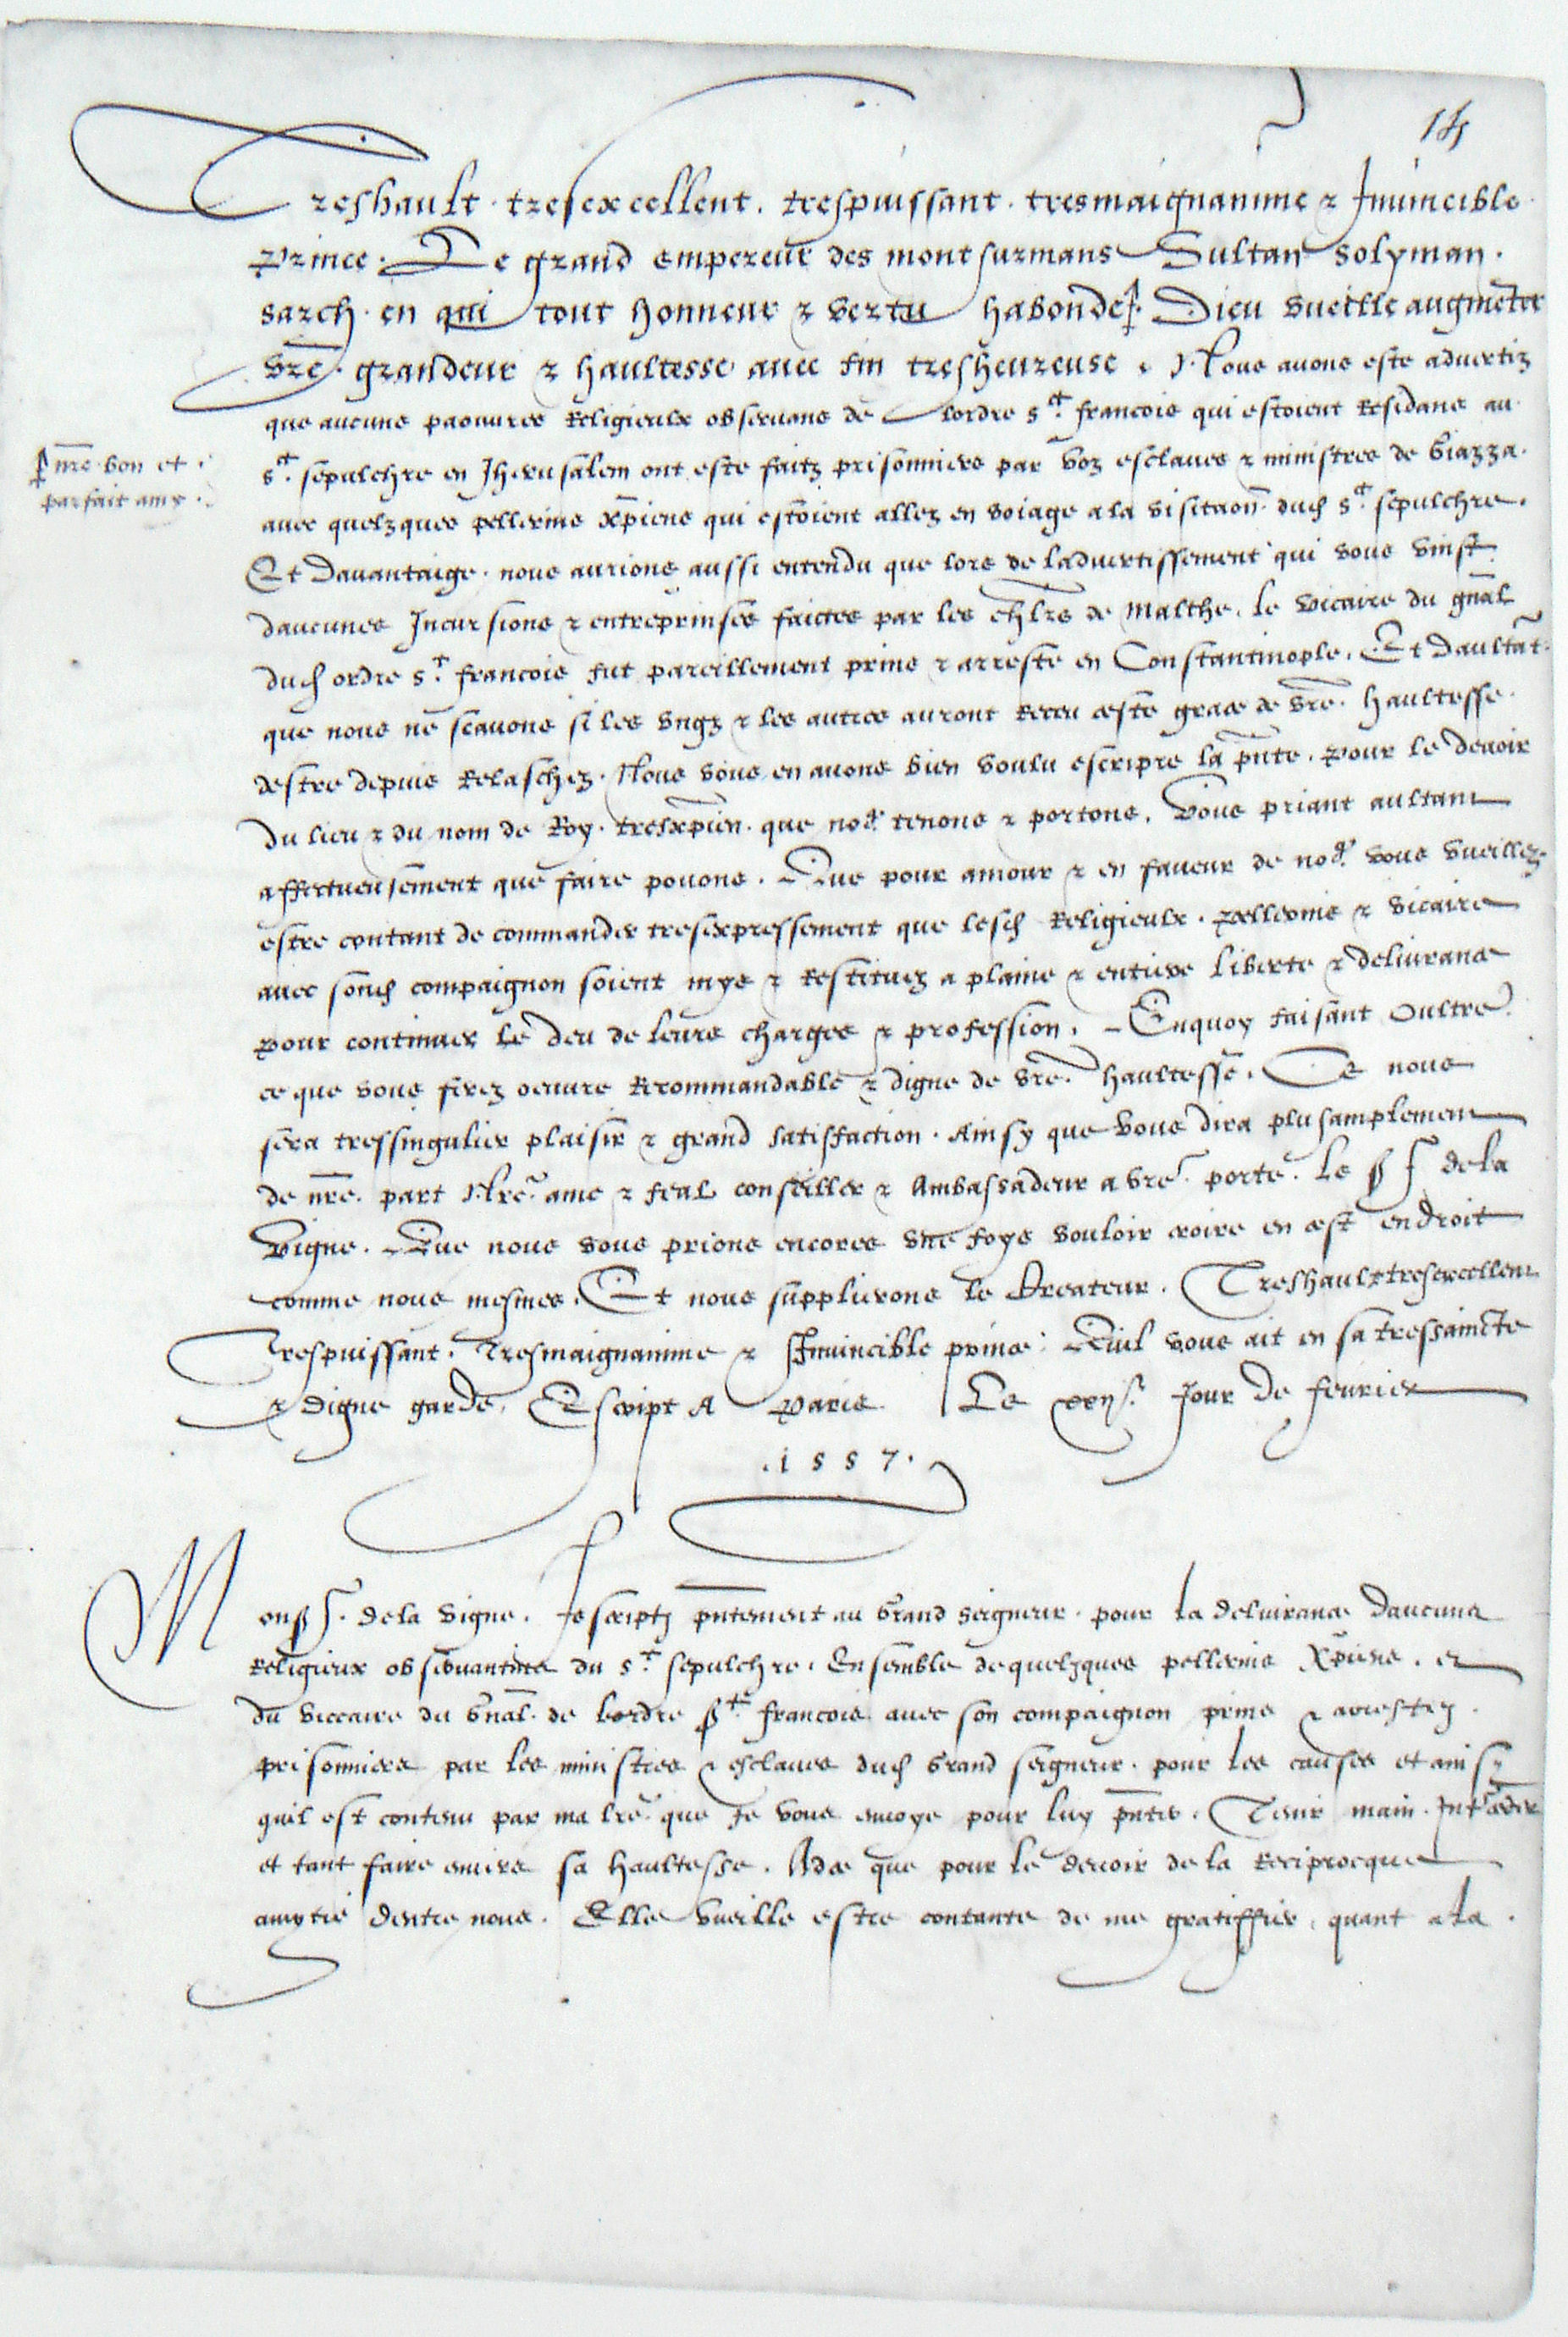 14
Treshault . tresexcellent . trespuissant . tresmaignanime & Jnuincible .
Prince . Le grand empereur des montsurmans Sultan solyman .
sarch . en qui tout honneur & vertu habonde . Dieu vueille augmẽter
vr̃e . grandeur & haultesse auec fin tresheureuse . Nous auons este aduertiz
que aucuns paouures Religieulx obseruans de lordre s.t francois qui estoient Residans au
nr̃e bon et
parfait amy .
s.t sepulchre en Jherusalem ont este faitz prisonniers par voz esclaues & ministres de Giazza .
auec quelzques pellerins xp̃iens qui estoient allez en voiage a la visitaon̄ dud s.t sepulchre .
Et dauantaige . nous aurions aussi entendu que lors de laduertissement qui vous vinst
daucunes Jncursions & entreprinses faictes par les chl̃rs de Malthe . le vicaire du gñal
dud ordre s.t francois fut pareillement prins & arreste en Constantinople . Et daultãt .
que nous ne scauons si les vngz & les autres auront Receu ceste grace de vr̃e . haultesse .
destre depuis Relaschez . Nous vous en auons bien voulu escripre la pñte . pour le deuoir
du lieu & du nom de Roy . tresxp̃ien . que no9 tenons & portons . Vous priant aultant
affectueusement que faire pouons . Que pour amour & en faueur de no9 vous vueillez
estre contant de commander tresexpressement que lesd Religieulx . pellerins & vicaire
auec sond compaignon soient mys & Restituez a plaine & entiere liberte & deliurance
pour continuer le deu de leurs charges & profession . Enquoy faisant oultre
ce que vous ferez oeuure Recommandable & digne de vr̃e . haultesse . Ce nous
sera tressingulier plaisir & grand satisfaction . Ainsy que vous dira plusamplement
de nr̃e . part Nr̃e . ame & feal conseiller & Ambassadeur a vr̃e . porte . le Sr dela
Vigne . Que nous vous prions encores vne foys vouloir croire en cest endroit
comme nous mesmes . Et nous supplirons le Createur . Treshault tresexcellent
Trespuissant . Tresmaignanime & Jnuincible prince . Quil vous ait en sa tressaincte
& digne garde . Escript A Paris . Le xxije Jour de feurier
. 1 5 5 7 .
Monsr . dela vigne . Jescriptz pñtement au Grand seigneur . pour la deliurance daucuns
Religieux obseruantins du s.t sepulchre . Ensemble dequelzques pellerins xp̃iens . et
du viccaire du Gñal . de lordre St francois auec son compaignon prins & arrestez .
prisonniers par les ministres & esclaues dud Grand seigneur . pour les causes et ainsy
quil est contenu par ma lr̃e . que Je vous enuoye pour luy pñter . Tenir main . Jnterceder
et tant faire enuers sa haultesse . Adce que pour le deuoir de la Reciprocque
amytie dentre nous . Elle vueille estre contante de me gratiffier , quant ala .